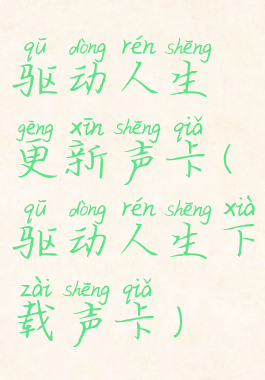 qū dòng rén shēng
驱动人生
gēng xīn shēng qiǎ
更新声卡(
qū dòng rén shēng xià
驱动人生下
zài shēng qiǎ
载声卡)